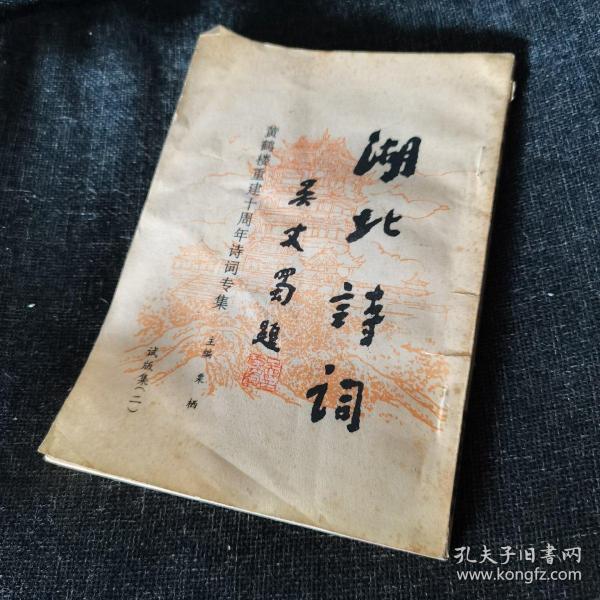 湖北詩词
吴丈蜀題
黄鹤楼重建十周年诗词专集
主编 朱栖
试版集(二)
孔夫子旧書网
www.kongfz.com